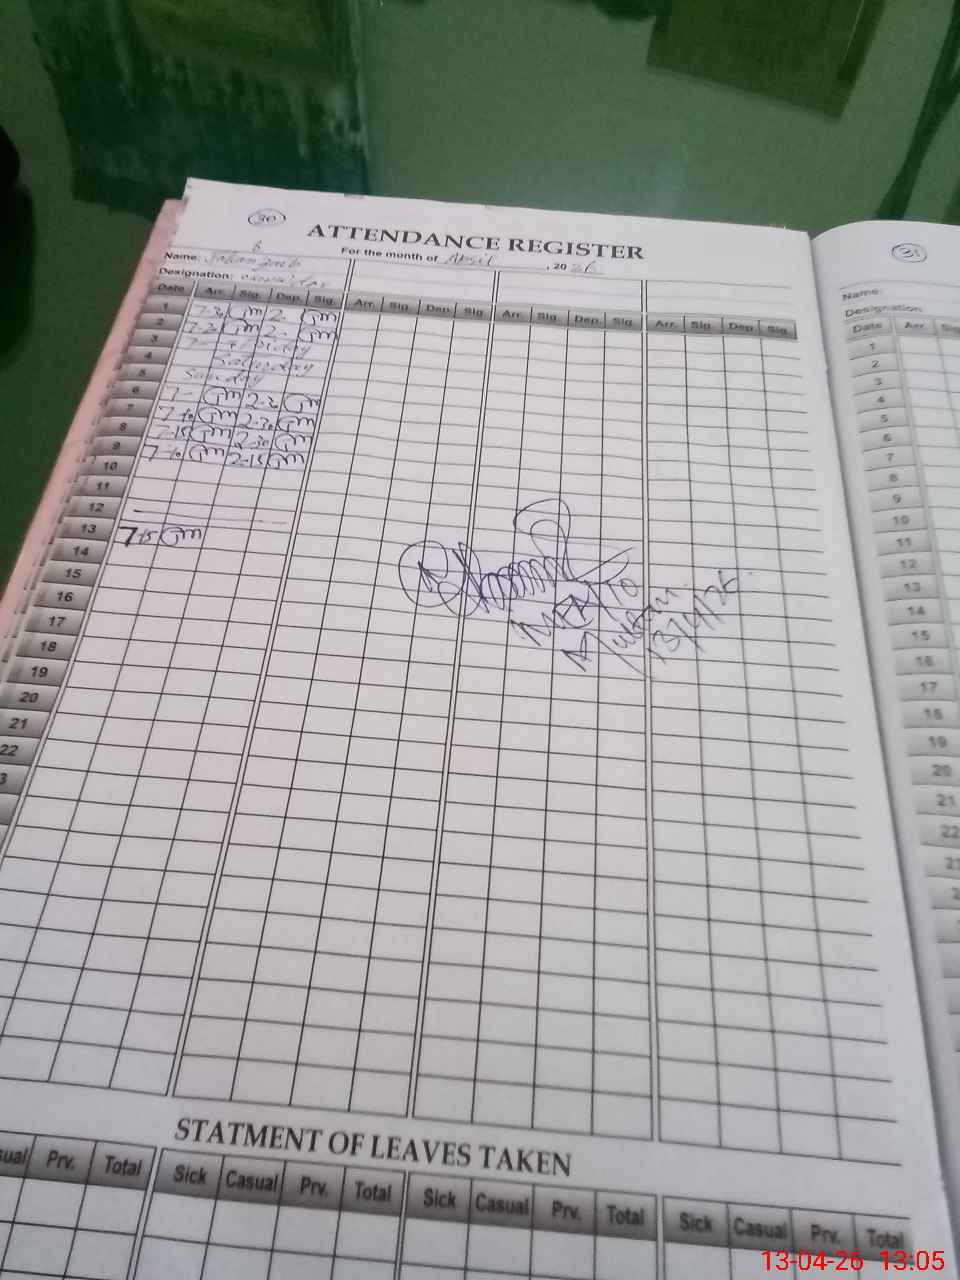 30
ATTENDANCE REGISTER
31
For the month of April, 2026
Name: Jahanzaib
Designation:
Date Arr. Sig. Dep. Sig. Arr. Sig. Dep. Sig. Arr. Sig. Dep. Sig. Arr. Sig. Dep. Sig.
1 7-30 2
2 2
3 Friday
4 Saturday
5 Sunday
6 2-30
7 7-10 2-30
8 7-15 2-30
9 7-10 2-15
10
11
12
13 7-15
14
15
16
17
18
19
20
21
22
3
13/4/26
STATMENT OF LEAVES TAKEN
sual Prv. Total Sick Casual Prv. Total Sick Casual Prv. Total Sick Casual Prv. Total
Name:
Designation
Date Arr. Sig
1
2
3
4
5
6
7
8
9
10
11
12
13
14
15
16
17
18
19
20
21
22
13-04-26 13:05